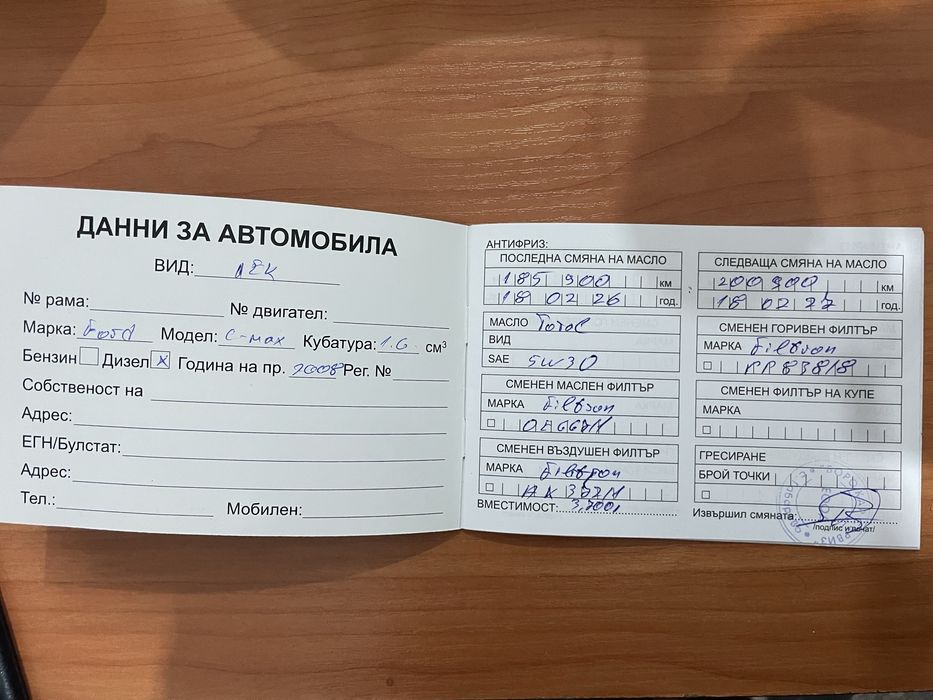 ДАННИ ЗА АВТОМОБИЛА
ВИД: лек
№ рама: № двигател:
Марка: Ford Модел: C-max Кубатура: 1.6 см³
Бензин Дизел x Година на пр. 2008 Рег. №
Собственост на
Адрес:
ЕГН/Булстат:
Адрес:
Тел.: Мобилен:
АНТИФРИЗ:
ПОСЛЕДНА СМЯНА НА МАСЛО
185 900 км
18 02 26 год.
МАСЛО Total
ВИД
SAE 5W30
СМЕНЕН МАСЛЕН ФИЛТЪР
МАРКА Filtron
СМЕНЕН ВЪЗДУШЕН ФИЛТЪР
МАРКА Filtron
ВМЕСТИМОСТ:
СЛЕДВАЩА СМЯНА НА МАСЛО
200 900 км
18 02 27 год.
СМЕНЕН ГОРИВЕН ФИЛТЪР
МАРКА Filtron
СМЕНЕН ФИЛТЪР НА КУПЕ
МАРКА
ГРЕСИРАНЕ
БРОЙ ТОЧКИ
Извършил смяната:
/подпис и печат/